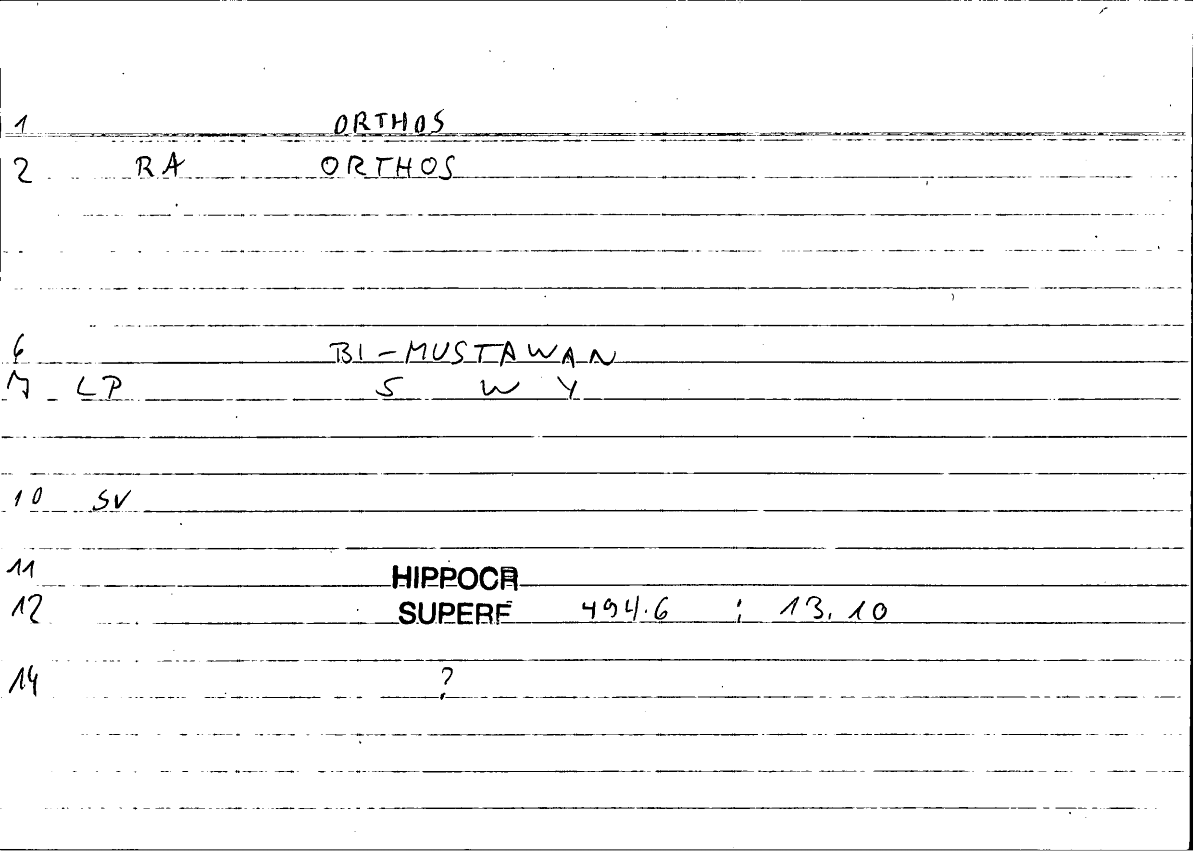 1 ORTHOS
2 RA ORTHOS
6 BI-MUSTAWAN
7 LP S W Y
10 SV
11 HIPPOCR
12 SUPERF 494.6 ; 13.10
14 ?